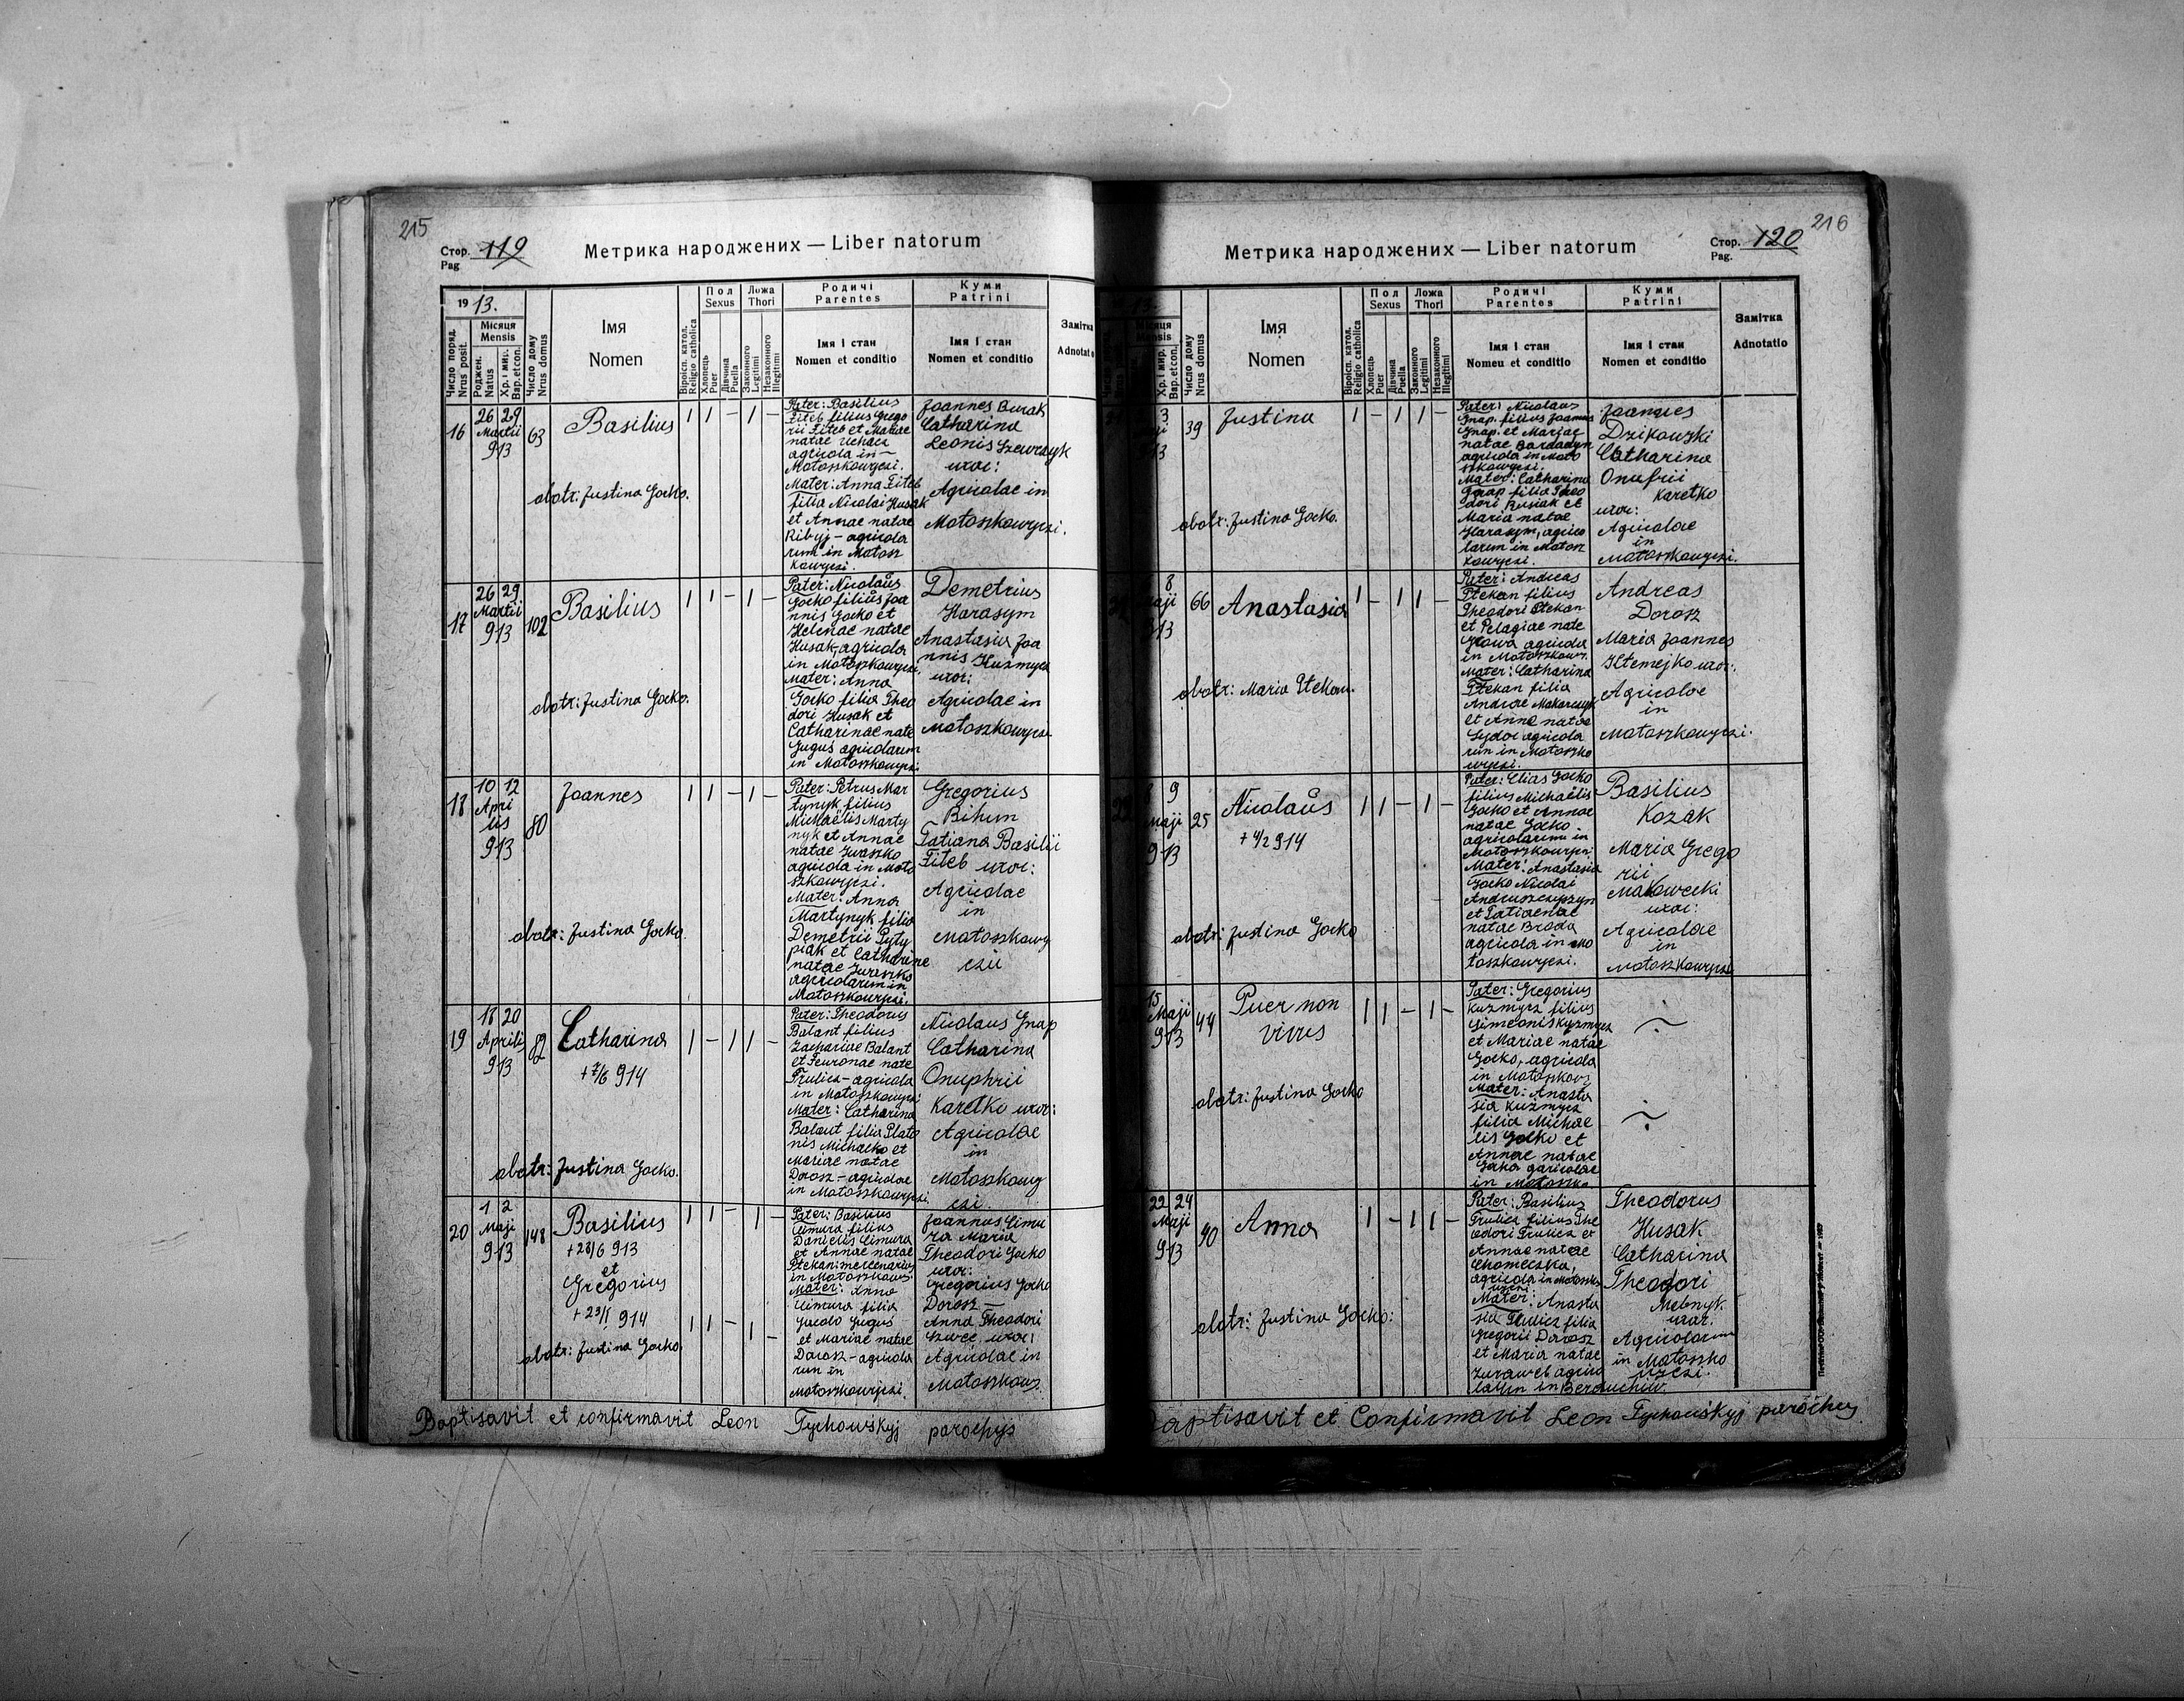 215
Стор. 119
Pag
Метрика народжених — Liber natorum
1913.
Число поряд.
Nrus posit.
Місяця
Mensis
Роджен.
Natus
Хр. і мир.
Bap. et con.
Число дому
Nrus domus
Імя
Nomen
Віроісп. катол.
Religio catholica
Пол
Sexus
Хлопець
Puer
Дівчина
Puella
Ложа
Thori
Законного
Legitimi
Незаконного
Illegitimi
Родичі
Parentes
Імя і стан
Nomen et conditio
Куми
Patrini
Імя і стан
Nomen et conditio
Замітка
Adnotatio
16
26 29
Martii
913
63
Basilius
1 1 – 1 –
obstr: Justina Gocko.
Pater: Basilius
Fiteb filius Grego
rii Fiteb et Mariae
natae
agricola in –
Motoszkowyczi.
Mater: Anna Fiteb
filia Nicolai Husak
et Annae natae
Ribyj – agricola
rum in Motosz
kowyczi.
Joannes Burak
Catharina
Leonis Szewczyk
uxor:
Agricolae in
Motoszkowyczi.
17
26 29
Martii
913
102
Basilius
1 1 – 1 –
obstr: Justina Gocko.
Pater: Nicolaus
Gocko filius Joa
nnis Gocko et
Helenae natae
Husak, agricola
in Motoszkowyczi.
Mater: Anna
Gocko filia Theo
dori Husak et
Catharinae nate
Gugus agricolarum
in Motoszkowyczi
Demetrius
Harasym
Anastasia Joa
nnis Kuzmycz
uxor:
Agricolae in
Motoszkowyczi
18
10 12
Apri
lis
913
80
Joannes
1 1 – 1 –
obstr: Justina Gocko
Pater: Petrus Mar
tynyk filius
Michaelis Marty
nyk et Annae
natae Juraszko
agricola in Moto
szkowyczi.
Mater: Anna
Martynyk filia
Demetrii Pyty
piak et Catharine
natae Juraszko
agricolarum in
Motoszkowyczi.
Gregorius
Bihun
Tatiana Basilii
Fiteb uxor:
Agricolae
in
Motoszkowy
czii
19
18 20
Aprilis
913
82
Catharina
+ 7/6 914
1 – 1 1 –
obstr: Justina Gocko.
Pater: Theodorus
Balant filius
Zachariae Balant
et Fewronae nate
Trulicz – agricola
in Motoszkowyczi
Mater: Catharina
Balant filia Plato
nis Michalko et
Mariae natae
Dorosz – agricolae
in Motoszkowyczi.
Nicolaus Gnap
Catharina
Onuphrii
Karetko uxor:
Agricolae
in
Motoszkowy
czi.
20
1 2
Maji
913
148
Basilius
+ 28/6 913
et
Gregorius
+ 23/1 914
1 1 – 1 –
1 1 – 1 –
obstr: Justina Gocko.
Pater: Basilius
Cimura filius
Danielis Cimura
et Annae natae
Stekan: mercenarius
in Motoszkowy
Mater: Anna
Cimura filia
Jacobi Gugus
et Mariae natae
Dorosz – agricola
rum in
Motoszkowyczi.
Joannes Cimu
ra Maria
Theodori Gocko
uxor:
Gregorius Gocko
Dorosz –
Anna Theodori
Szwec uxor:
Agricolae in
Motoszkowy.
Baptisavit et confirmavit Leon Tychowskyj parochus
216
Стор. 120
Pag.
Метрика народжених — Liber natorum
13.
Місяця
Mensis
Хр. і мир.
Bap. et con.
Число дому
Nrus domus
Імя
Nomen
Віроісп. катол.
Religio catholica
Пол
Sexus
Хлопець
Puer
Дівчина
Puella
Ложа
Thori
Законного
Legitimi
Незаконного
Illegitimi
Родичі
Parentes
Імя і стан
Nomeu et conditio
Куми
Patrini
Імя і стан
Nomen et conditio
Замітка
Adnotatio
3
13
39
Justina
1 – 1 1 –
obstr: Justina Gocko.
Pater: Nicolaus
Gnap. filius Joannis
Gnap. et Mariae
natae Bardadyn
agricola in Moto
szkowyczi.
Mater: Catharina
Gnap filia Theo
dori Rusiak et
Maria natae
Harasym, agrico
larum in Motosz
kowyczi.
Joannes
Dzikowski
Catharina
Onufrii
Karetko
uxor:
Agricolae
in
Motoszkowyczi.
8
aji
13
66
Anastasia
1 – 1 1 –
obstr: Maria Stekan.
Pater: Andreas
Stekan filius
Theodori Stekan
et Pelagiae nate
agricola
in Motoszkowy.
Mater: Catharina
Stekan filia
Andrae Makarczyk
et Anne natae
Sydor agricola
rum in Motoszko
wyczi.
Andreas
Dorosz
Maria Joannes
uxor:
Agricolae
in
Motoszkowyczi.
22
9
Maji
913
25
Nicolaus
+ 4/2 914
1 1 – 1 –
obstr: Justina Gocko
Pater: Elias Gocko
filius Michaelis
Gocko et Annae
natae Gocko –
agricolarum in
Motoszkowyczi.
Mater: Anastasia
Gocko Nicolai
Andruszczyszyn
et Tatianae
natae Broda
agricola in Mo
toszkowyczi.
Basilius
Kozak
Maria Grego
rii
Makowecki
uxor:
Agricolae
in
Motoszkowyczi
15
Maji
913
44
Puer non
vivus
1 1 – 1 –
obstr: Justina Gocko
Pater: Gregorius
Kuzmycz filius
Simeonis Kuzmycz
et Mariae natae
Gocko, agricola
in Motoszkowy
Mater: Anasta
sia Kuzmycz
filia Michae
lis Gocko et
Annae natae
Gocko agricolae
in Motoszko
22 24
Maji
913
90
Anna
1 – 1 1 –
obstr: Justina Gocko:
Pater: Basilius
Trulicz filius The
odori Trulicz et
Annae natae
Chomeczka,
agricola in Motoszko
wyczi
Mater: Anasta
sia Trulicz filia
Gregorii Dorosz
et Maria natae
Zurawel agrico
larum in Berduchiw.
Theodorus
Husak
Catharina
Theodori
Melnyk.
uxor.
Agricolarum
in Motoszko
wyczi.
aptisavit et Confirmavit Leon Tychowskyj parochus